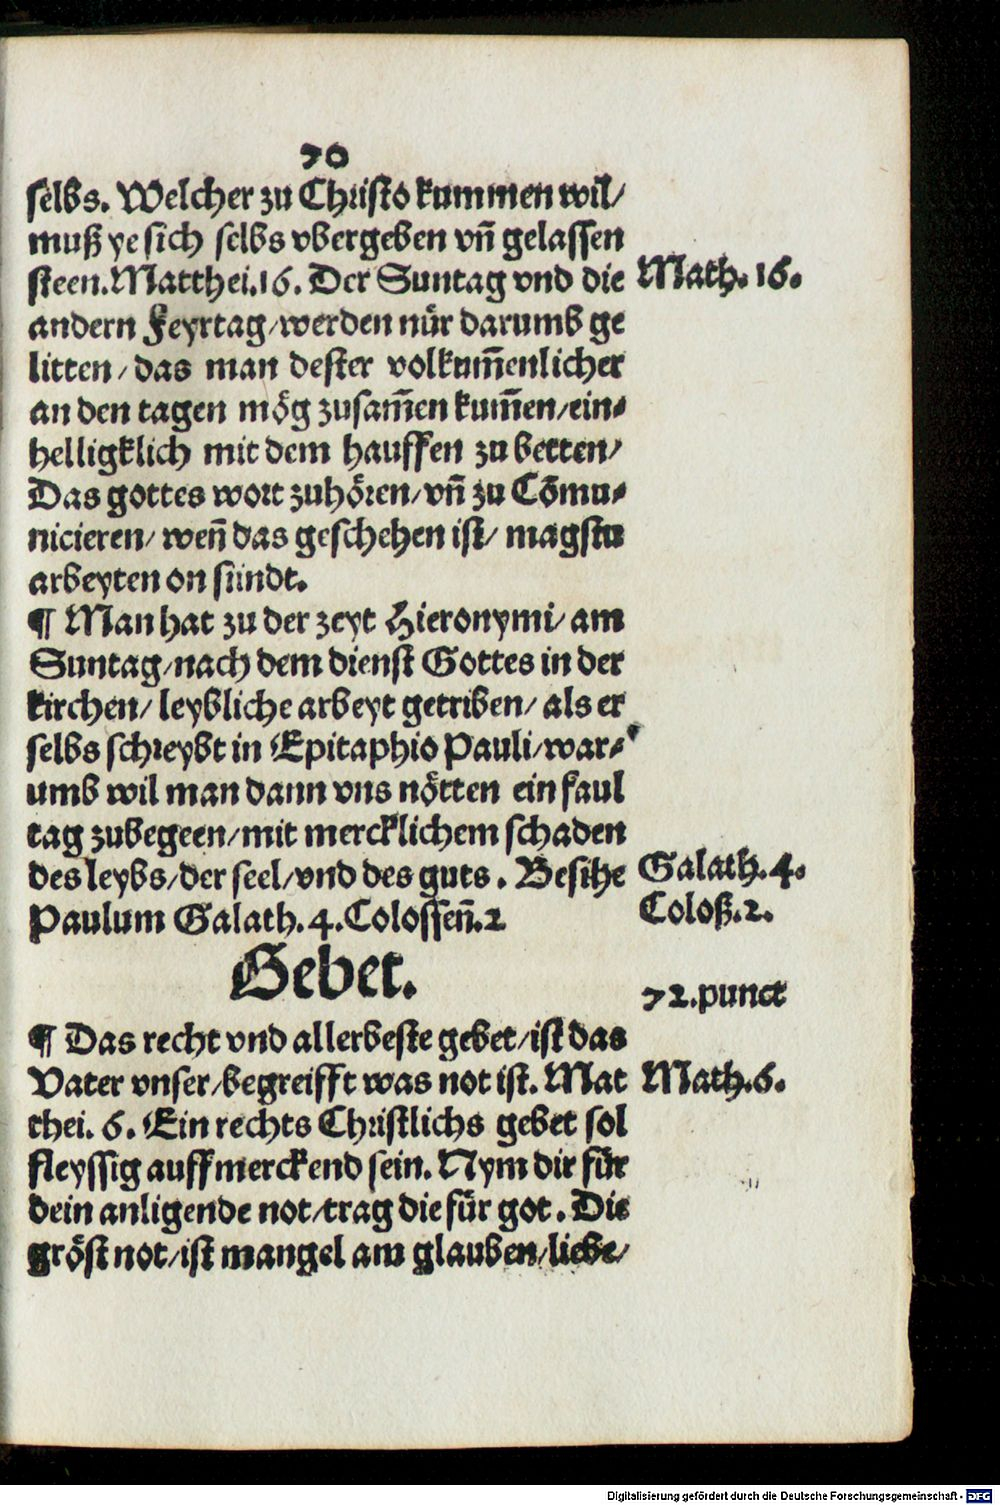 70
selbs. Welcher zu Christo kummen wil/
muß ye sich selbs vbergeben vñ gelassen
steen. Matthei.16. Der Suntag vnd die
Math. 16.
andern Feyrtag/werden nür darumb ge
litten/das man dester volkum̃enlicher
an den tagen mög zusam̃en kum̃en/ein⸗
helligklich mit dem hauffen zu betten/
Das gottes wort zuhören/vñ zu Cõmu⸗
nicieren/wen̄ das geschehen ist/ magstu
arbeyten on sündt.
¶ Man hat zu der zeyt Hieronymi/am
Suntag/nach dem dienst Gottes in der
kirchen/leybliche arbeyt getriben/als er
selbs schreybt in Epitaphio Pauli/war⸗
umb wil man dann vns nötten ein faul
tag zubegeen/mit mercklichem schaden
des leybs/der seel/vnd des guts. Besihe
Galath.4.
Paulum Galath.4.Colosseñ.2
Coloß.2.
Gebet.
72.punct
¶ Das recht vnd allerbeste gebet/ist das
Vater vnser/begreifft was not ist. Mat
Math.6.
thei. 6. Ein rechts Christlichs gebet sol
fleyssig auffmerckend sein. Nym dir für
dein anligende not/trag die für got. Die
gröst not/ist mangel am glauben/liebe/
Digitalisierung gefördert durch die Deutsche Forschungsgemeinschaft - DFG